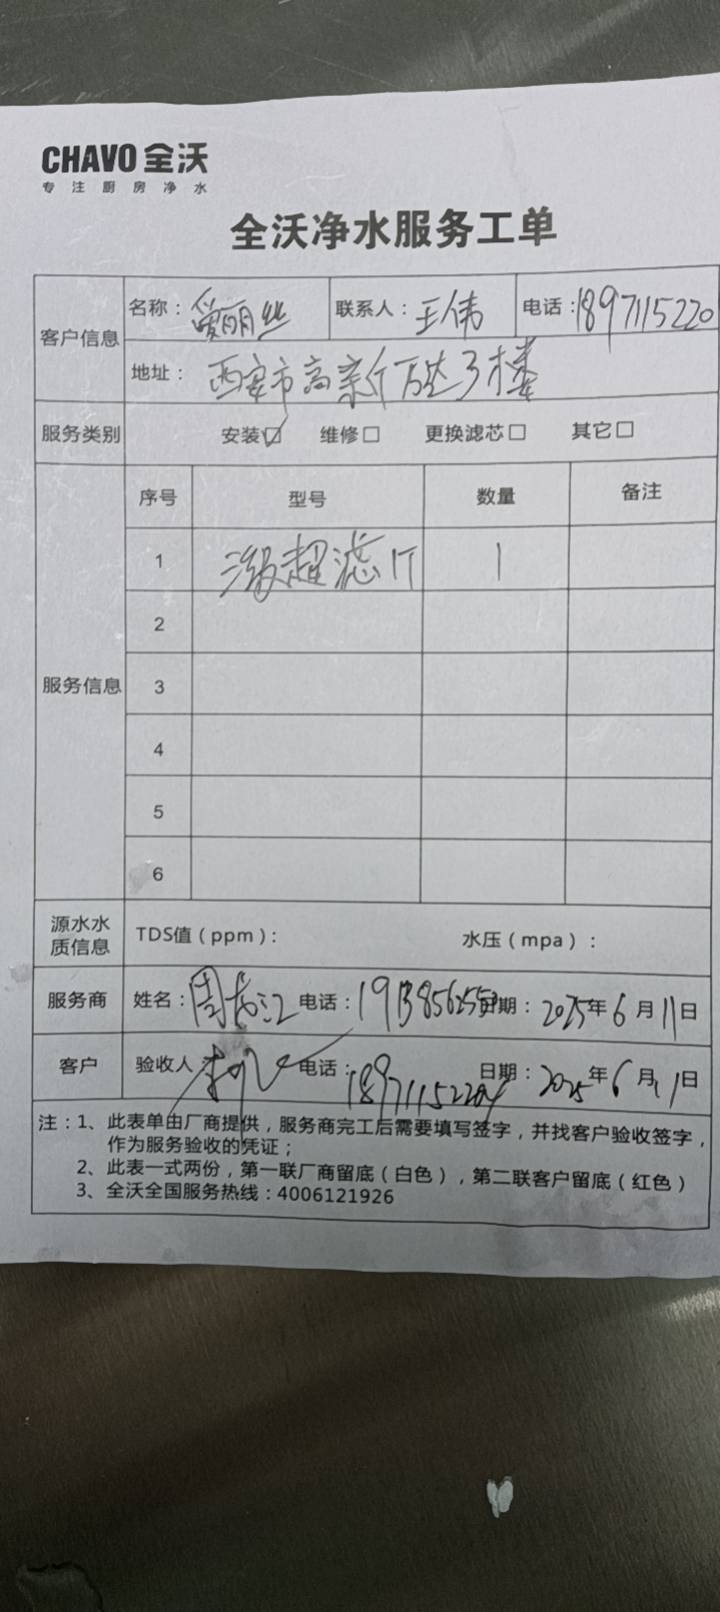 CHAVO 全沃
专注厨房净水
全沃净水服务工单
客户信息 名称：爱丽丝 联系人：王伟 电话：1897115220
地址：西安市高新万达3楼
服务类别 安装☑ 维修□ 更换滤芯□ 其它□
服务信息 序号 型号 数量 备注
1 三级超滤1T 1
2
3
4
5
6
源水水质信息 TDS值（ppm）： 水压（mpa）：
服务商 姓名：周长江 电话： 日期：2025年6月11日
客户 验收人 电话： 日期：2025年6月11日
注：1、此表单由厂商提供，服务商完工后需要填写签字，并找客户验收签字，
作为服务验收的凭证；
2、此表一式两份，第一联厂商留底（白色），第二联客户留底（红色）
3、全沃全国服务热线：4006121926